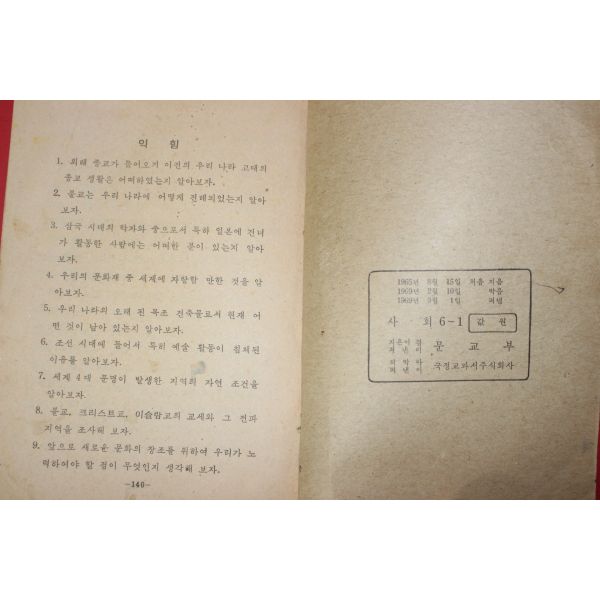 익 힘
1. 외래 종교가 들어오기 이전의 우리 나라 고대의
종교 생활은 어떠하였는지 알아보자.
2. 불교는 우리 나라에 어떻게 전해되었는지 알아
보자.
3. 삼국 시대의 학자와 중으로서 특히 일본에 건너
가 활동한 사람에는 어떠한 분이 있는지 알아
보자.
4. 우리의 문화재 중 세계에 자랑할 만한 것을 알
아보자.
5. 우리 나라의 오래 된 목조 건축물로서 현재 어
떤 것이 남아 있는지 알아보자.
6. 조선 시대에 들어서 특히 예술 활동이 침체된
이유를 알아보자.
7. 세계 4대 문명이 발생한 지역의 자연 조건을
알아보자.
8. 불교, 크리스트교, 이슬람교의 교세와 그 전파
지역을 조사해 보자.
9. 앞으로 새로운 문화의 창조를 위하여 우리가 노
력하여야 할 점이 무엇인지 생각해 보자.
—140—
1965년 8월 15일 처음 지음
1969년 2월 10일 박음
1969년 3월 1일 펴냄
사 회 6-1 값 원
지은이 겸
펴낸이 문 교 부
박은이 국정교과서주식회사